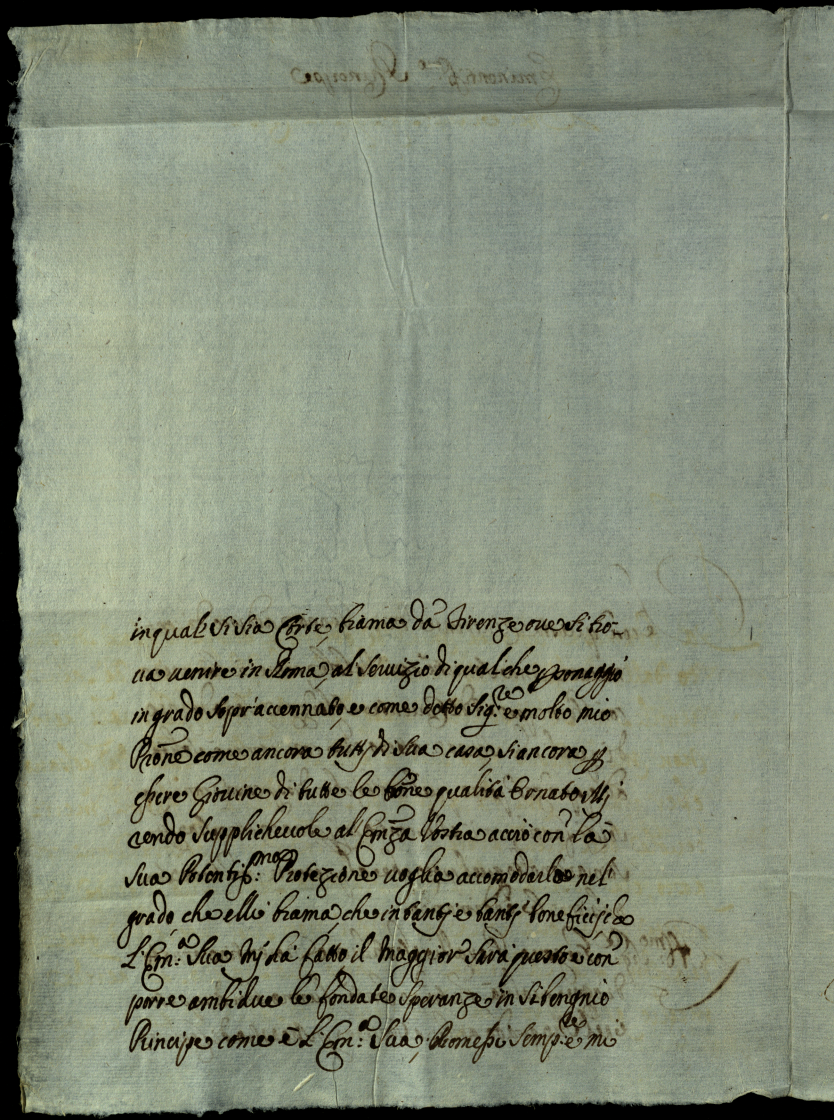 in qual si sia Corte, brama da Firenze oue si tro-
ua uenire in Roma, al seruizio di qualche
in grado sopr'accennato, e come detto Sig.re è molto mio
Pron̄e come ancora tutti di sua casa, si ancora p
essere Giouine di tutte le bone qualità
rendo suppliheuole al Em̄za Vostra acciò con la
sua Potentiss.ma Protezione uoglia accomodarlo nel
grado, che elli brama, che in tanti e tanti beneficij che
L'Em.a Sua mi dà fatto il maggior sarà questo e con
porre ambidue le fondate speranze in sì bengnio
Principe come è L'Em.a Sua, Promessi semp.re è mi